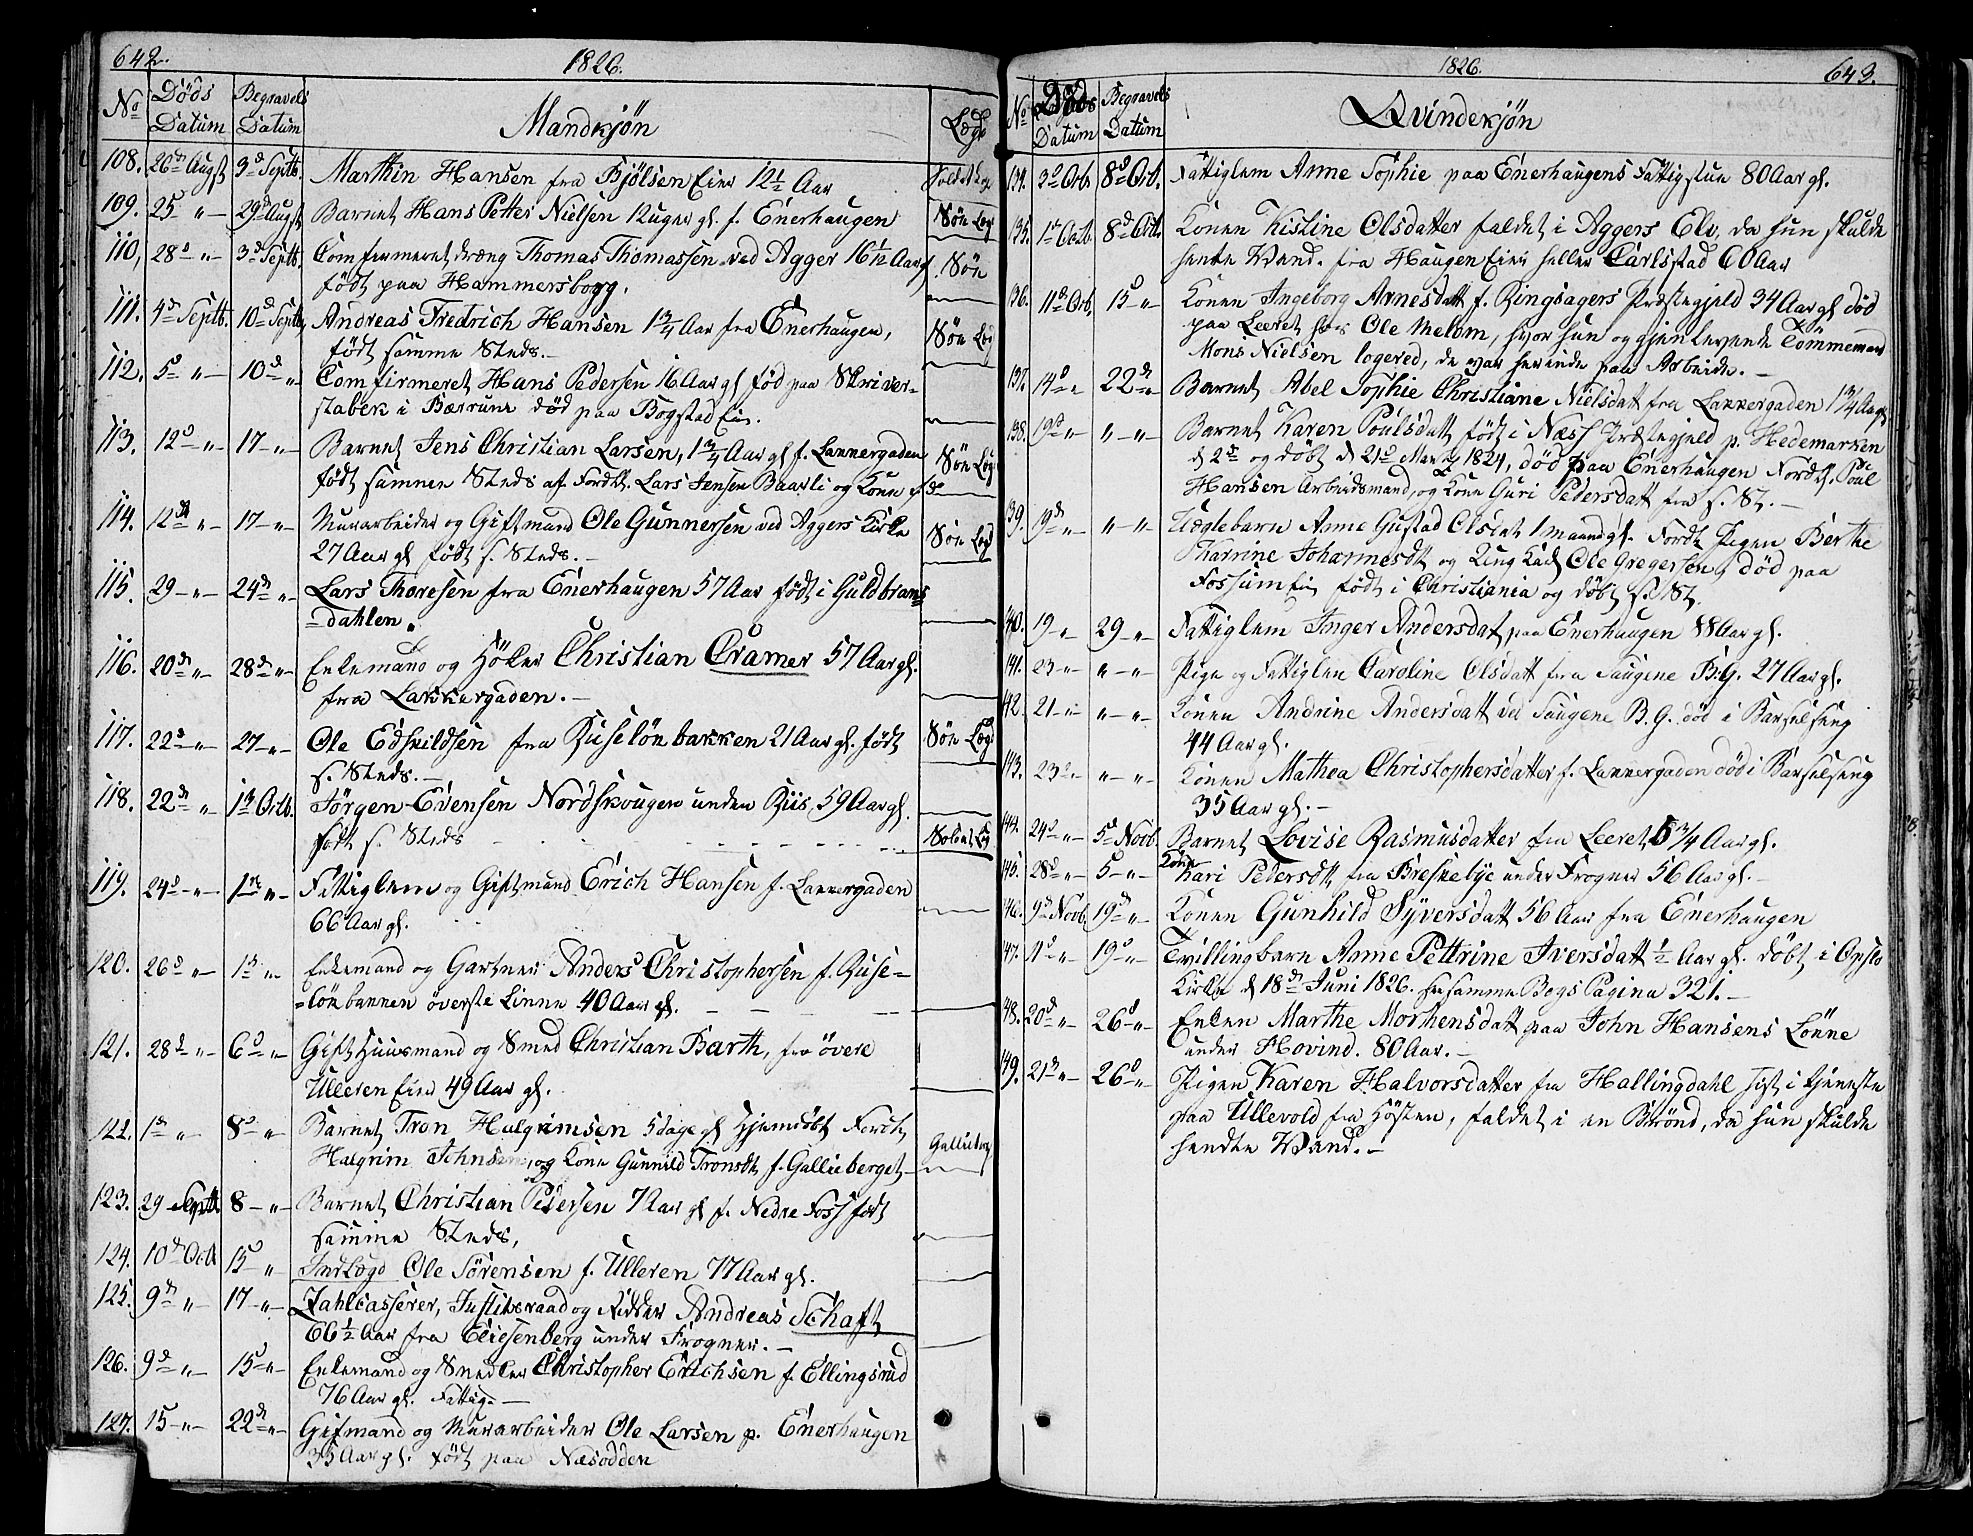 642.
1826.
No Døds Datum Begravels Datum Mandkjøn Læge
108. 26de Augst 3d Septb. Marthin Hansen fra Bjölsen Eier 12½ Aar
109. 25d „ 29d Augst Barnet Hans Petter Nielsen 12 uger gl. f. Enerhaugen Søn Læg
110, 28d „ 3d Septb. Comfirmeret dræng Thomas Thomassen ved Agger 16½ Aar gl Søn
født paa Hammersborg.
111. 4d Septb. 10d Septb. Andreas Fredrich Hansen 1¾ Aar fra Enerhaugen, Søn Læg
født samme Steds.-
112. 5d „ 10d „ Comfirmeret Hans Pedersen 16 Aar gl fød paa Skriver-
stabek i Bærrum død paa Bogstad Eie.
113. 12d „ 17 „ Barnet Jens Christian Larsen, 1¾ Aar gl f. Lakkergaden Søn Læg
født samme Steds af Forældr. Lars Jensen Baarli og Kone
114. 12d „ 17 „ Murarbeider og Giftmand Ole Gunnersen ved Aggers Kirke Søn Læg
27 Aar gl født s. Steds.-
115. 29 „ 24d „ Lars Thoresen fra Enerhaugen 57 Aar født i Guldbrans=
=dahlen.
116. 20d „ 28d „ Enkemand og Høker Christian Cramer 57 Aar gl.
fra Lakkergaden.-
117. 22d „ 27 „ Ole Edskildsen fra Ruseløn bakken 21 Aar gl. født Søn Læg
s. Steds.-
118. 22d „ 1d Octb. Jørgen Evensen Nordskougen under Riis 59 Aar gl.
født s. Steds
119. 24d „ 1d „ Fattiglem og Giftmand Erich Hansen f. Lakkergaden
66 Aar gl.
120. 26d „ 1d „ Enkemand og Gartner Anders Christophersen f. Ruse=
=løn bakken överste Linne 40 Aar gl.
121. 28d „ 6d „ Gift Huusmand og Smed Christian Barth, fra övere
Ulleren Eier 49 Aar gl.
122. 1d „ 8d „ Barnet Tron Halgrimsen 5 dage gl Hjemdøbt Foræld.
Halgrim Johnsen, og Kone Gunnild Tronsdt f. Gallieberget
123. 29 Septb. 8 „ Barnet Christian Pedersen 7 Aar gl f. Nedre Foss født
samme Steds,
124. 10d Octb 15d „ Indlagd Ole Sørensen f. Ulleren 77 Aar gl.
125. 9d „ 17 „ Zahlcasserer, Justitsraad og Ridder Andreas Schaft
66½ Aar fra Eliesenberg under Frogner.-
126. 9d „ 15d „ Enkemand og Snedker Christopher Erichsen f. Ellingsrud
76 Aar gl. Fattig.-
127. 15 „ 22d „ Gifmand og Murarbeider Ole Larsen p. Enerhaugen
35 Aar gl. født paa Næsodden
1826.
643.
No Døds Datum Begravels Datum Qvindekjøn
134. 3d Octb. 8d Octb. Fattiglem Anne Sophie paa Enerhaugens Fattigstue 80 Aar gl.
135. 1d Octb. 8d Octb. Konen Kistine Olsdatter faldet i Aggers Elv, da hun skulde
hente Vand. fra Haugen Eier heller Carlstad 60 Aar
136. 11d Octb. 15d „ Konen Ingeborg Arnesdatt f. Ringsagers Præstegjeld 34 Aar gl død
paa Leeret hos Ole Melom, hvor hun og gjenlevende Tömmermand
Mons Nielsen logered, de var herinde paa Arbeide.-
137. 14d „ 22d „ Barnet Abel Sophie Christiane Nielsdatt fra Lakkergaden 1¾ Aar gl
138. 19d „ „ „ Barnet Karen Poulsdatt født i Næss Præstegjeld p. Hedemarken
d 2d og døbt d 21d Martz 1824, død paa Enerhaugen Foræld. Poul
Hansen Arbeidsmand, og Kone Guri Pedersdatt fra s. St.-
139. 19d „ „ „ Uægtebarn Anne Gustad Olsdat 1 maand gl. Foræld Pigen Berthe
Karrine Johannesdt og Ung Karl Ole Gregersen, død paa
Fossum Eie født i Christiania og døbt s. St.
140. 19 „ 29 „ Fattiglem Inger Andersdat paa Enerhaugen 88 Aar gl.
141. 23 „ „ „ Pige og Fattiglem Caroline Olsdatt fra Saugene B.G. 27 Aar gl.
142. 21 „ „ „ Konen Andrine Andersdatt ved Saugene B.G. død i Barselseng
44 Aar gl.
143. 23d „ „ „ Konen Mathea Christophersdatter f. Lakkergaden død i Barselseng
35 Aar gl.-
144. 24d „ 5d Novb. Barnet Lovise Rasmusdatter fra Leeret 5¾ Aar gl.
145. 28d „ 5d „ Konen Kari Pedersdt fra Breskebye under Frogner 56 Aar gl.-
146. 9d Novb. 19d „ Konen Gunhild Syversdatt 56 Aar fra Enerhaugen
147. 11d „ 19d „ Tvillingbarn Anne Pettrine Iversdatt ½ Aar gl. døbt i Opslo
Kirke d 18d Juni 1826. see samme Bogs Pagina 321.-
148. 20d „ 26d „ Enken Marthe Morthensdatt paa John Hansens Lönne
under Hovind. 80 Aar.-
149. 21d „ 26d „ Pigen Karen Halvorsdatter fra Hallingdahl sist i tjeneste
paa Ullevold fra Høsten, faldet i en Brönd, da hun skulde
hendte Vand.-